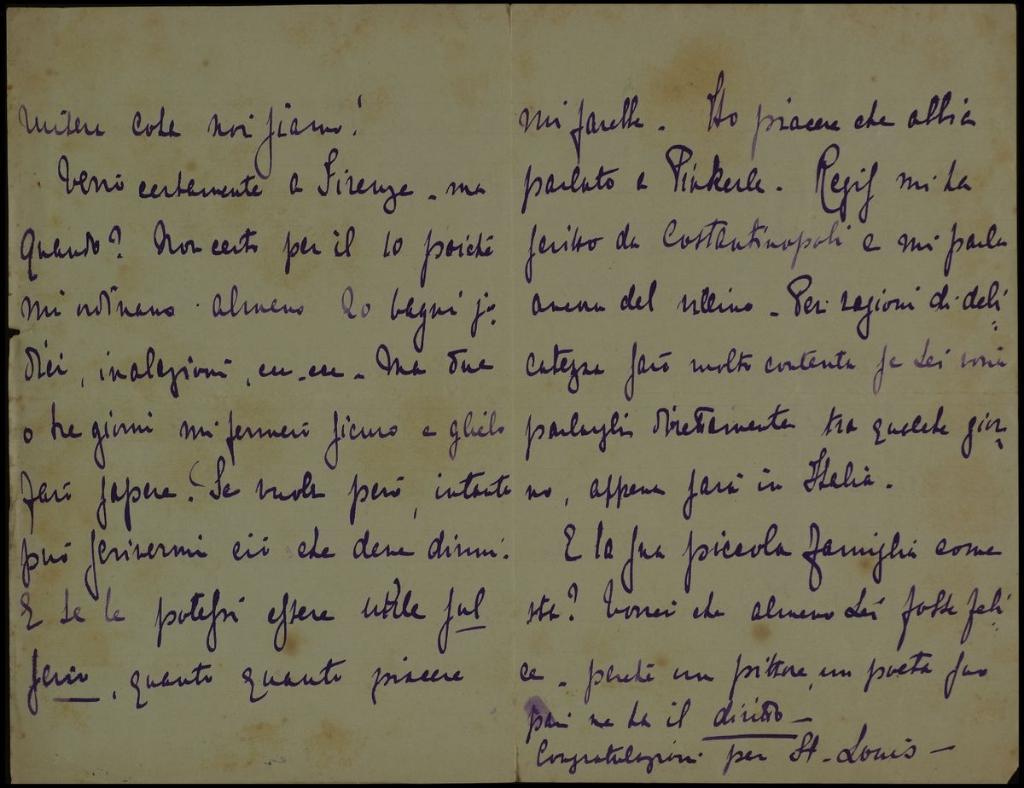 mitere cosa noi siamo!
Verrò certamente a Firenze - ma
quando? Non certo per il 10 poiché
mi ordinano almeno 20 bagni jo-
dici, inalazioni, ecc. ecc. Ma due
o tre giorni mi fermerò sicuro e glielo
farò sapere. Se vuole però, intanto
può scrivermi ciò che deve dirmi.
E se le potessi essere utile sul
serio, quanto quanto piacere
mi farebbe. Ho piacere che abbia
parlato a Pinkerle. Regis mi ha
scritto da Costantinopoli e mi parla
ancora del ... Per ragioni di deli-
catezza sarò molto contenta se Lei vorrà
parlargli direttamente tra qualche gior-
no, appena sarà in Italia.
E la sua piccola famiglia come
sta? Vorrei che almeno Lei fosse feli-
ce - perché un pittore, un poeta suo
pari ne ha il diritto -
Congratulazioni per St. Louis -